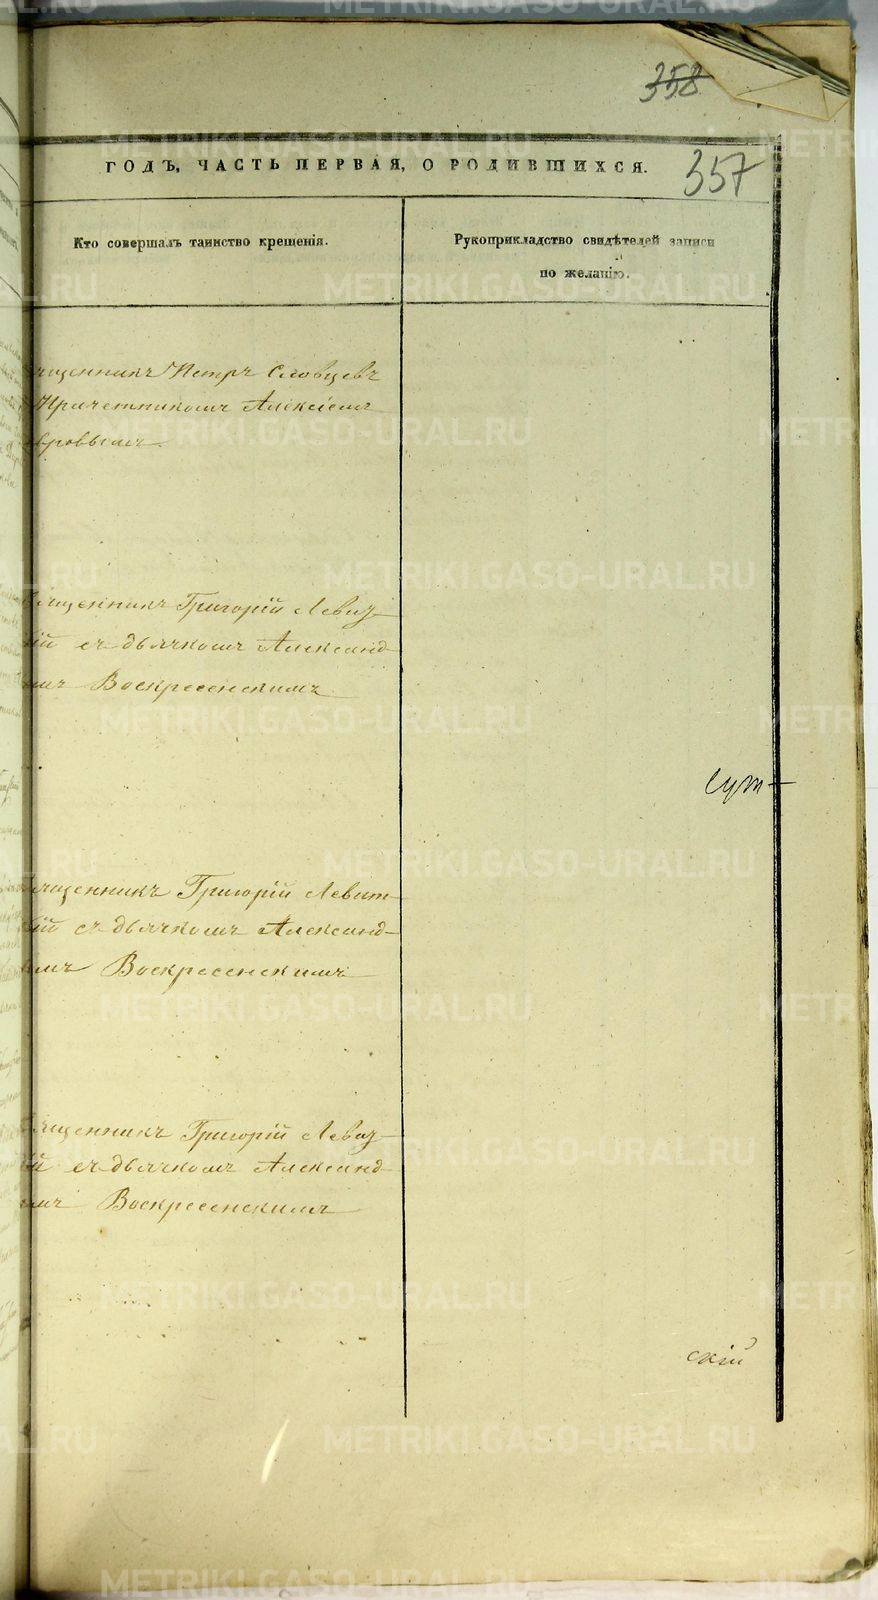 358
ГОДЪ, ЧАСТЬ ПЕРВАЯ, О РОДИВШИХСЯ.
357
Кто совершалъ таинство крещенія.
Рукоприкладство свидѣтелей записи
по желанію.
щенникъ Петръ Словцевъ
Причетникомъ Алексѣемъ
вровымъ.
ященникъ Григорій Левиз-
кій съ дьячкомъ Александ-
омъ Воскресенскимъ
Сут-
ященникъ Григорій Левит-
кій съ дьячкомъ Александ-
омъ Воскресенскимъ
ященникъ Григорій Левиз-
ій съ дьячкомъ Александ-
омъ Воскресенскимъ
скій
METRIKI.GASO-URAL.RU